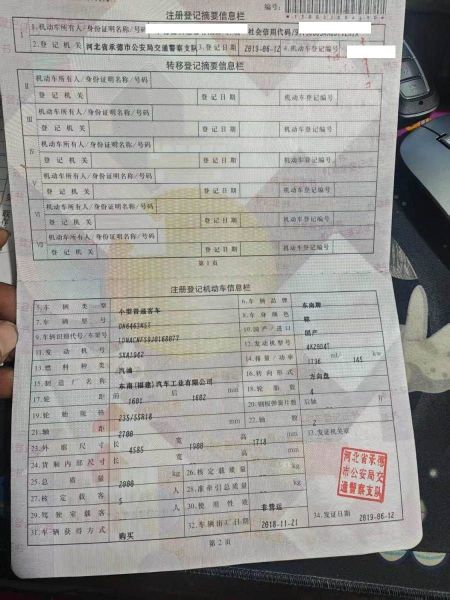 编号:
注册登记摘要信息栏
1.机动车所有人/身份证明名称/号码 社会信用代码/9
2.登记机关 河北省承德市公安局交通警察支队 3.登记日期 2019-06-12 4.机动车登记编号
转移登记摘要信息栏
II 机动车所有人/身份证明名称/号码
登记机关 登记日期 机动车登记编号
III 机动车所有人/身份证明名称/号码
登记机关 登记日期 机动车登记编号
IV 机动车所有人/身份证明名称/号码
登记机关 登记日期 机动车登记编号
V 机动车所有人/身份证明名称/号码
登记机关 登记日期 机动车登记编号
VI 机动车所有人/身份证明名称/号码
登记机关 登记日期 机动车登记编号
VII 机动车所有人/身份证明名称/号码
登记机关 登记日期 机动车登记编号
第1页
注册登记机动车信息栏
5.车辆类型 小型普通客车 6.车辆品牌 东南牌
7.车辆型号 8.车身颜色
9.车辆识别代号/车架号 10.国产/进口 国产
11.发动机号 12.发动机型号
13.燃料种类 汽油 14.排量/功率 ml/ 145 kw
15.制造厂名称 东南(福建)汽车工业有限公司 16.转向形式 方向盘
17.轮距 前 1601 后 1602 mm 18.轮胎数
19.轮胎规格 235/55R18 20.钢板弹簧片数 后轴
21.轴距 2700 mm 22.轴数 2
23.外廓尺寸 长 4585 宽 1900 高 1718 mm 33.发证机关章
24.货厢内部尺寸 长 宽 高 mm 河北省承德市公安局交通警察支队
25.总质量 2000 kg 26.核定载质量 kg
27.核定载客 5 人 28.准牵引总质量 kg
29.驾驶室载客 人 30.使用性质 非营运
31.车辆获得方式 购买 32.车辆出厂日期 2018-11-21 34.发证日期 2019-06-12
第2页